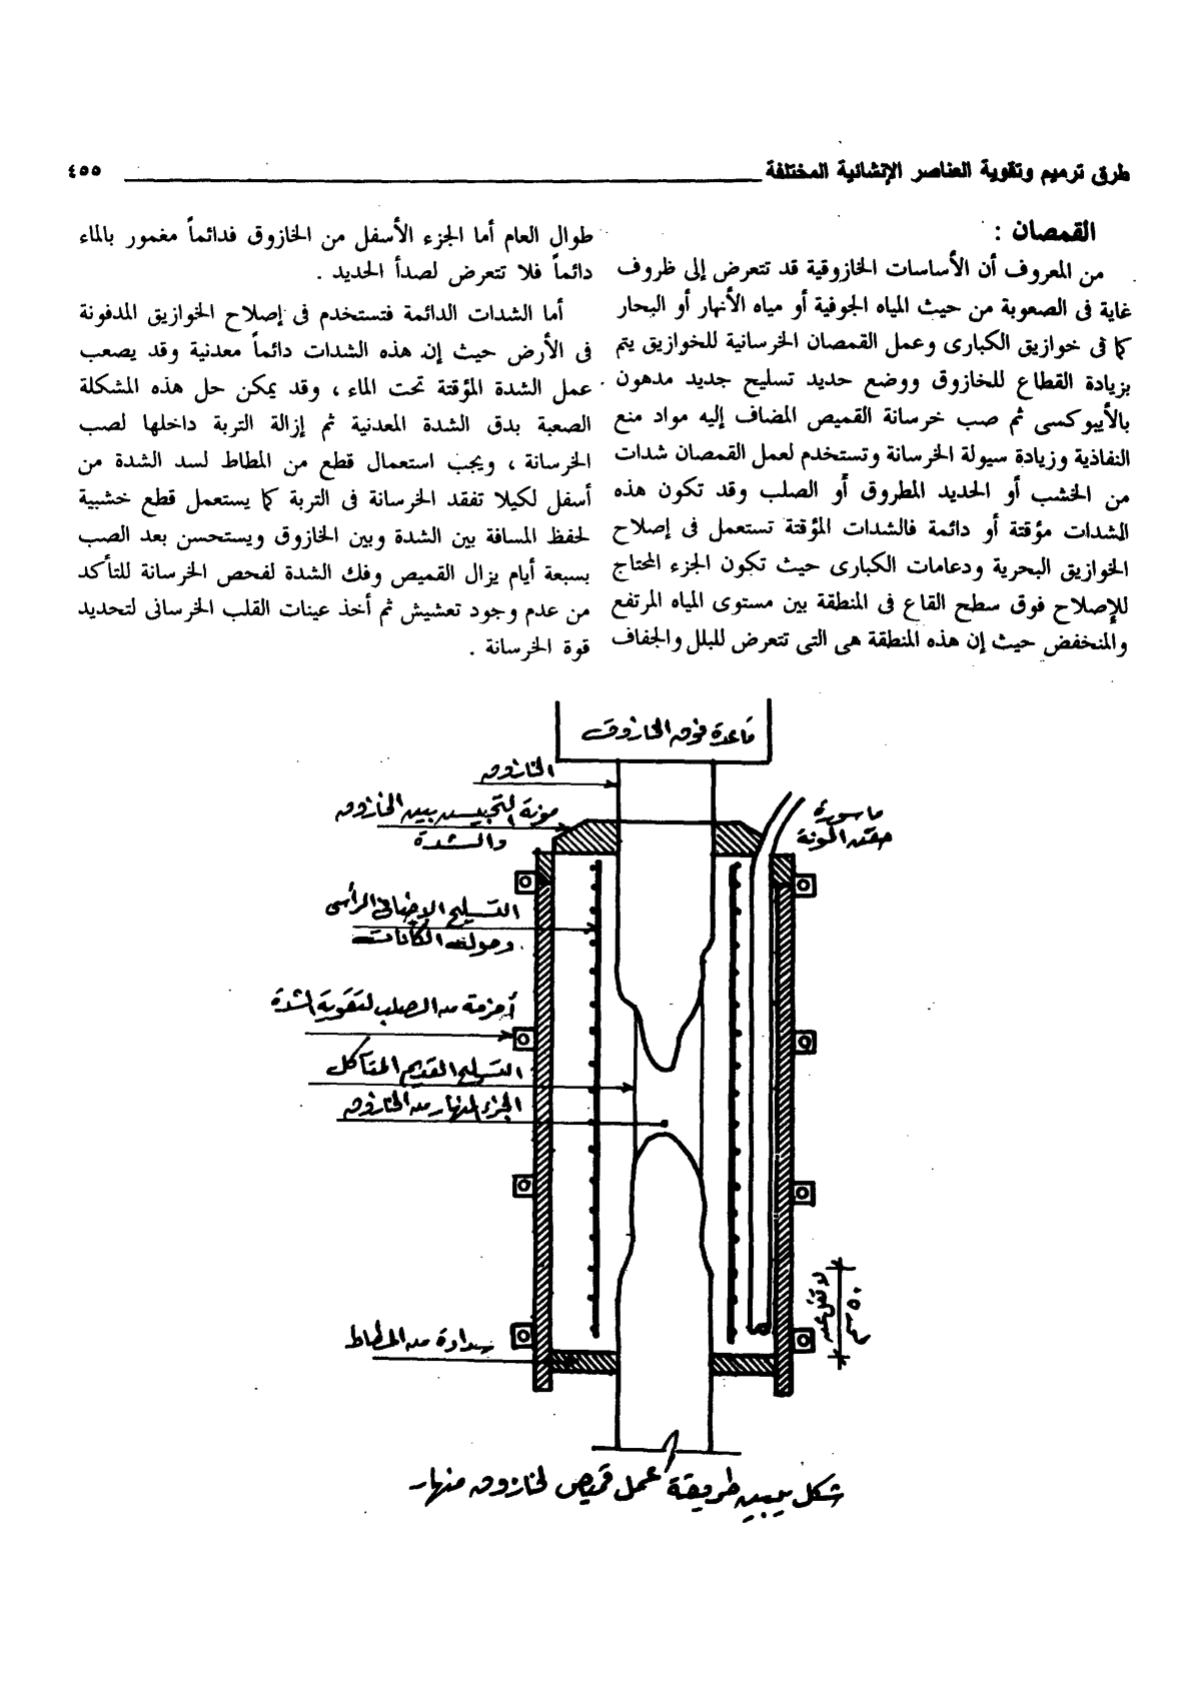 طرق ترميم وتقوية العناصر الإنشائية المختلفة ٤٥٥
القمصان :
من المعروف أن الأساسات الخازوقية قد تتعرض إلى ظروف
غاية فى الصعوبة من حيث المياه الجوفية أو مياه الأنهار أو البحار
كما فى خوازيق الكبارى وعمل القمصان الخرسانية للخوازيق يتم
بزيادة القطاع للخازوق ووضع حديد تسليح جديد مدهون
بالأيبوكسى ثم صب خرسانة القميص المضاف إليه مواد منع
النفاذية وزيادة سيولة الخرسانة وتستخدم لعمل القمصان شدات
من الخشب أو الحديد المطروق أو الصلب وقد تكون هذه
الشدات مؤقتة أو دائمة فالشدات المؤقتة تستعمل فى إصلاح
الخوازيق البحرية ودعامات الكبارى حيث تكون الجزء المحتاج
للإصلاح فوق سطح القاع فى المنطقة بين مستوى المياه المرتفع
والمنخفض حيث إن هذه المنطقة هى التى تتعرض للبلل والجفاف
طوال العام أما الجزء الأسفل من الخازوق فدائماً مغمور بالماء
دائماً فلا تتعرض لصدأ الحديد .
أما الشدات الدائمة فتستخدم فى إصلاح الخوازيق المدفونة
فى الأرض حيث إن هذه الشدات دائماً معدنية وقد يصعب
عمل الشدة المؤقتة تحت الماء ، وقد يمكن حل هذه المشكلة
الصعبة بدق الشدة المعدنية ثم إزالة التربة داخلها لصب
الخرسانة ، ويجب استعمال قطع من المطاط لسد الشدة من
أسفل لكيلا تفقد الخرسانة فى التربة كما يستعمل قطع خشبية
لحفظ المسافة بين الشدة وبين الخازوق ويستحسن بعد الصب
بسبعة أيام يزال القميص وفك الشدة لفحص الخرسانة للتأكد
من عدم وجود تعشيش ثم أخذ عينات القلب الخرسانى لتحديد
قوة الخرسانة .
قاعدة فوق الخازوق
الخازوق
مونة التجبيس بين الخازوق
والشدة
ماسورة
حقن المونة
التسليح الإضافى الرأسى
وحوله الكانات
أحزمة من الصلب لتقوية الشدة
التسليح القديم المتآكل
الجزء المنهار من الخازوق
لا تقل عن
٥٠ سم
سدادة من المطاط
شكل يبين طريقة عمل قميص لخازوق منهار